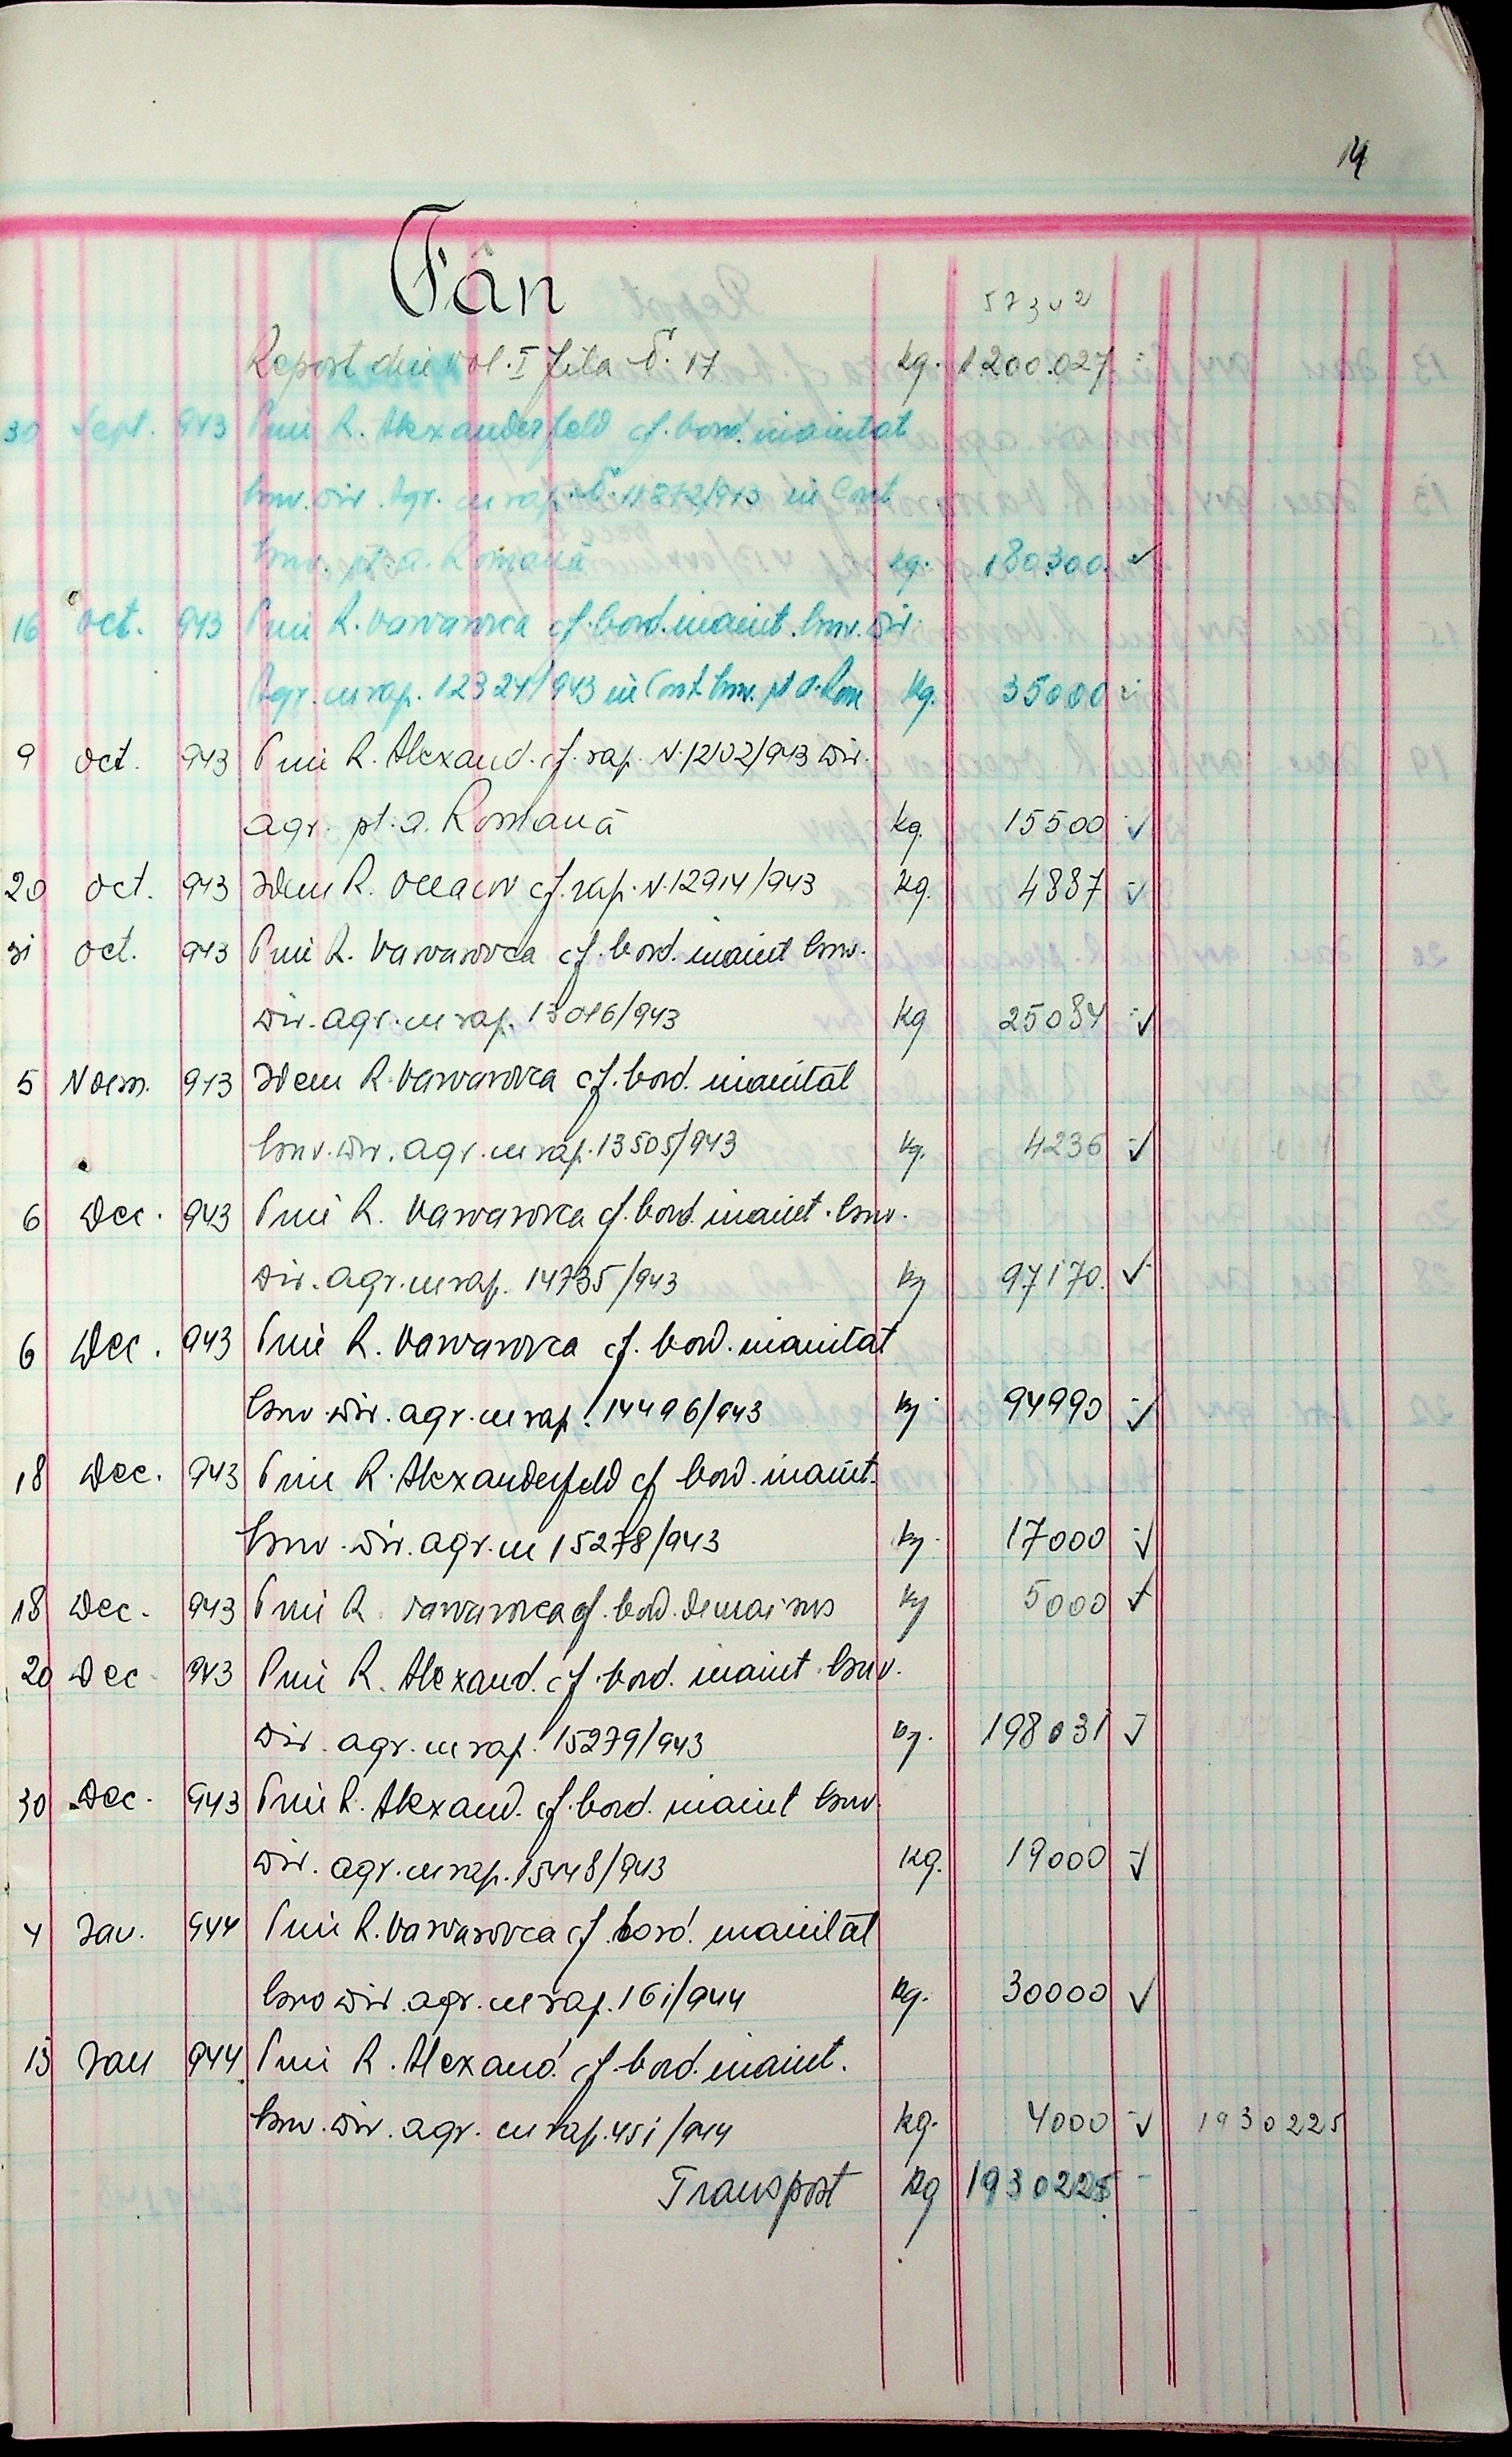 14
Fân
57302
Report din vol. I fila No. 17 kg. 1200.027
30 Sept. 943 Prin R. Alexanderfeld cf. bord. inaintat
Inv. Dir. Agr. cu rap. No. 11872/943 in Cont
Inv. pt. a. Romană kg. 180300
16 Oct. 943 Prin R. Varvarovca cf. bord. inaint. Inv. Dir.
Agr. cu rap. 12324/943 in Cont Inv. pt a. Rom kg. 35000
9 Oct. 943 Prin R. Alexand. cf. rap. N. 12102/943 Dir.
agr. pt. a. Romană kg. 15500
20 Oct. 943 Idem R. Oceacov cf. rap. N. 12914/943 kg. 4887
31 Oct. 943 Prin R. Varvarovca cf. bord. inaint Inv.
Dir. agr. cu rap. 13016/943 kg 25084
5 Noem. 943 Idem R. Varvarovca cf. bord. inaintat
Inv. Dir. agr. cu rap. 13505/943 kg. 4236
6 Dec. 943 Prin R. Varvarovca cf. bord. inaint. Inv.
Dir. agr. cu rap. 14735/943 kg 97170.
6 Dec. 943 Prin R. Varvarovca cf. bord. inaintat
Inv. Dir. agr. cu rap. 14496/943 kg 94990
18 Dec. 943 Prin R. Alexanderfeld cf bord. inaint.
Inv. Dir. agr. cu 15278/943 kg. 17000
18 Dec. 943 Prin R. Varvarovca cf. bord. de mai sus kg 5000
20 Dec 943 Prin R. Alexand. cf. bord. inaint. Inv.
Dir. agr. cu rap. 15279/943 kg. 198031
30 Dec. 943 Prin R. Alexand. cf. bord. inaint Inv.
Dir. agr. cu rap. 15448/943 kg. 19000
4 Ian. 944 Prin R. Varvarovca cf. bord. inaintat
Inv Dir. agr. cu rap. 161/944 kg. 30000
13 Ian 944 Prin R. Alexand. cf. bord. inaint.
Inv. Dir. agr. cu rap. 451/944 kg. 4000 1930225
Transport kg 1930225